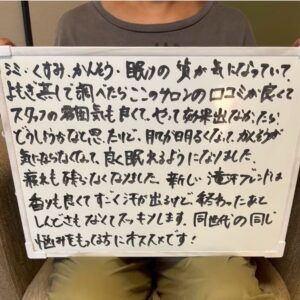 シミ・くすみ・かんそう・眠りの質が気になっていて、
よもぎ蒸しで調べたらここのサロンの口コミが良くて
スタッフの雰囲気も良くて、やって効果出なかたら
どうしようかなて思たけど、肌が明るくなて、かんそうが
気にならなくなって、良く眠れるようになりました。
疲れも残らなくなりました。新しい漢方ブレンドは
香りも良くてすごく汗が出るけど、終わったあと
しんどさもなくてスッキリします。同世代の同じ
悩みをもつ方にオススメです!